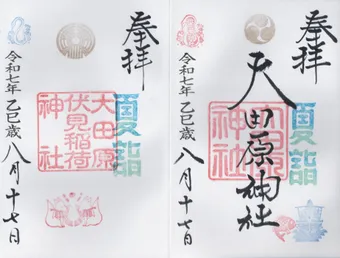 奉拝
夏詣
大田原神社
令和七年乙巳歳八月十七日
奉拝
夏詣
大田原
伏見稲荷
神社
令和七年乙巳歳八月十七日